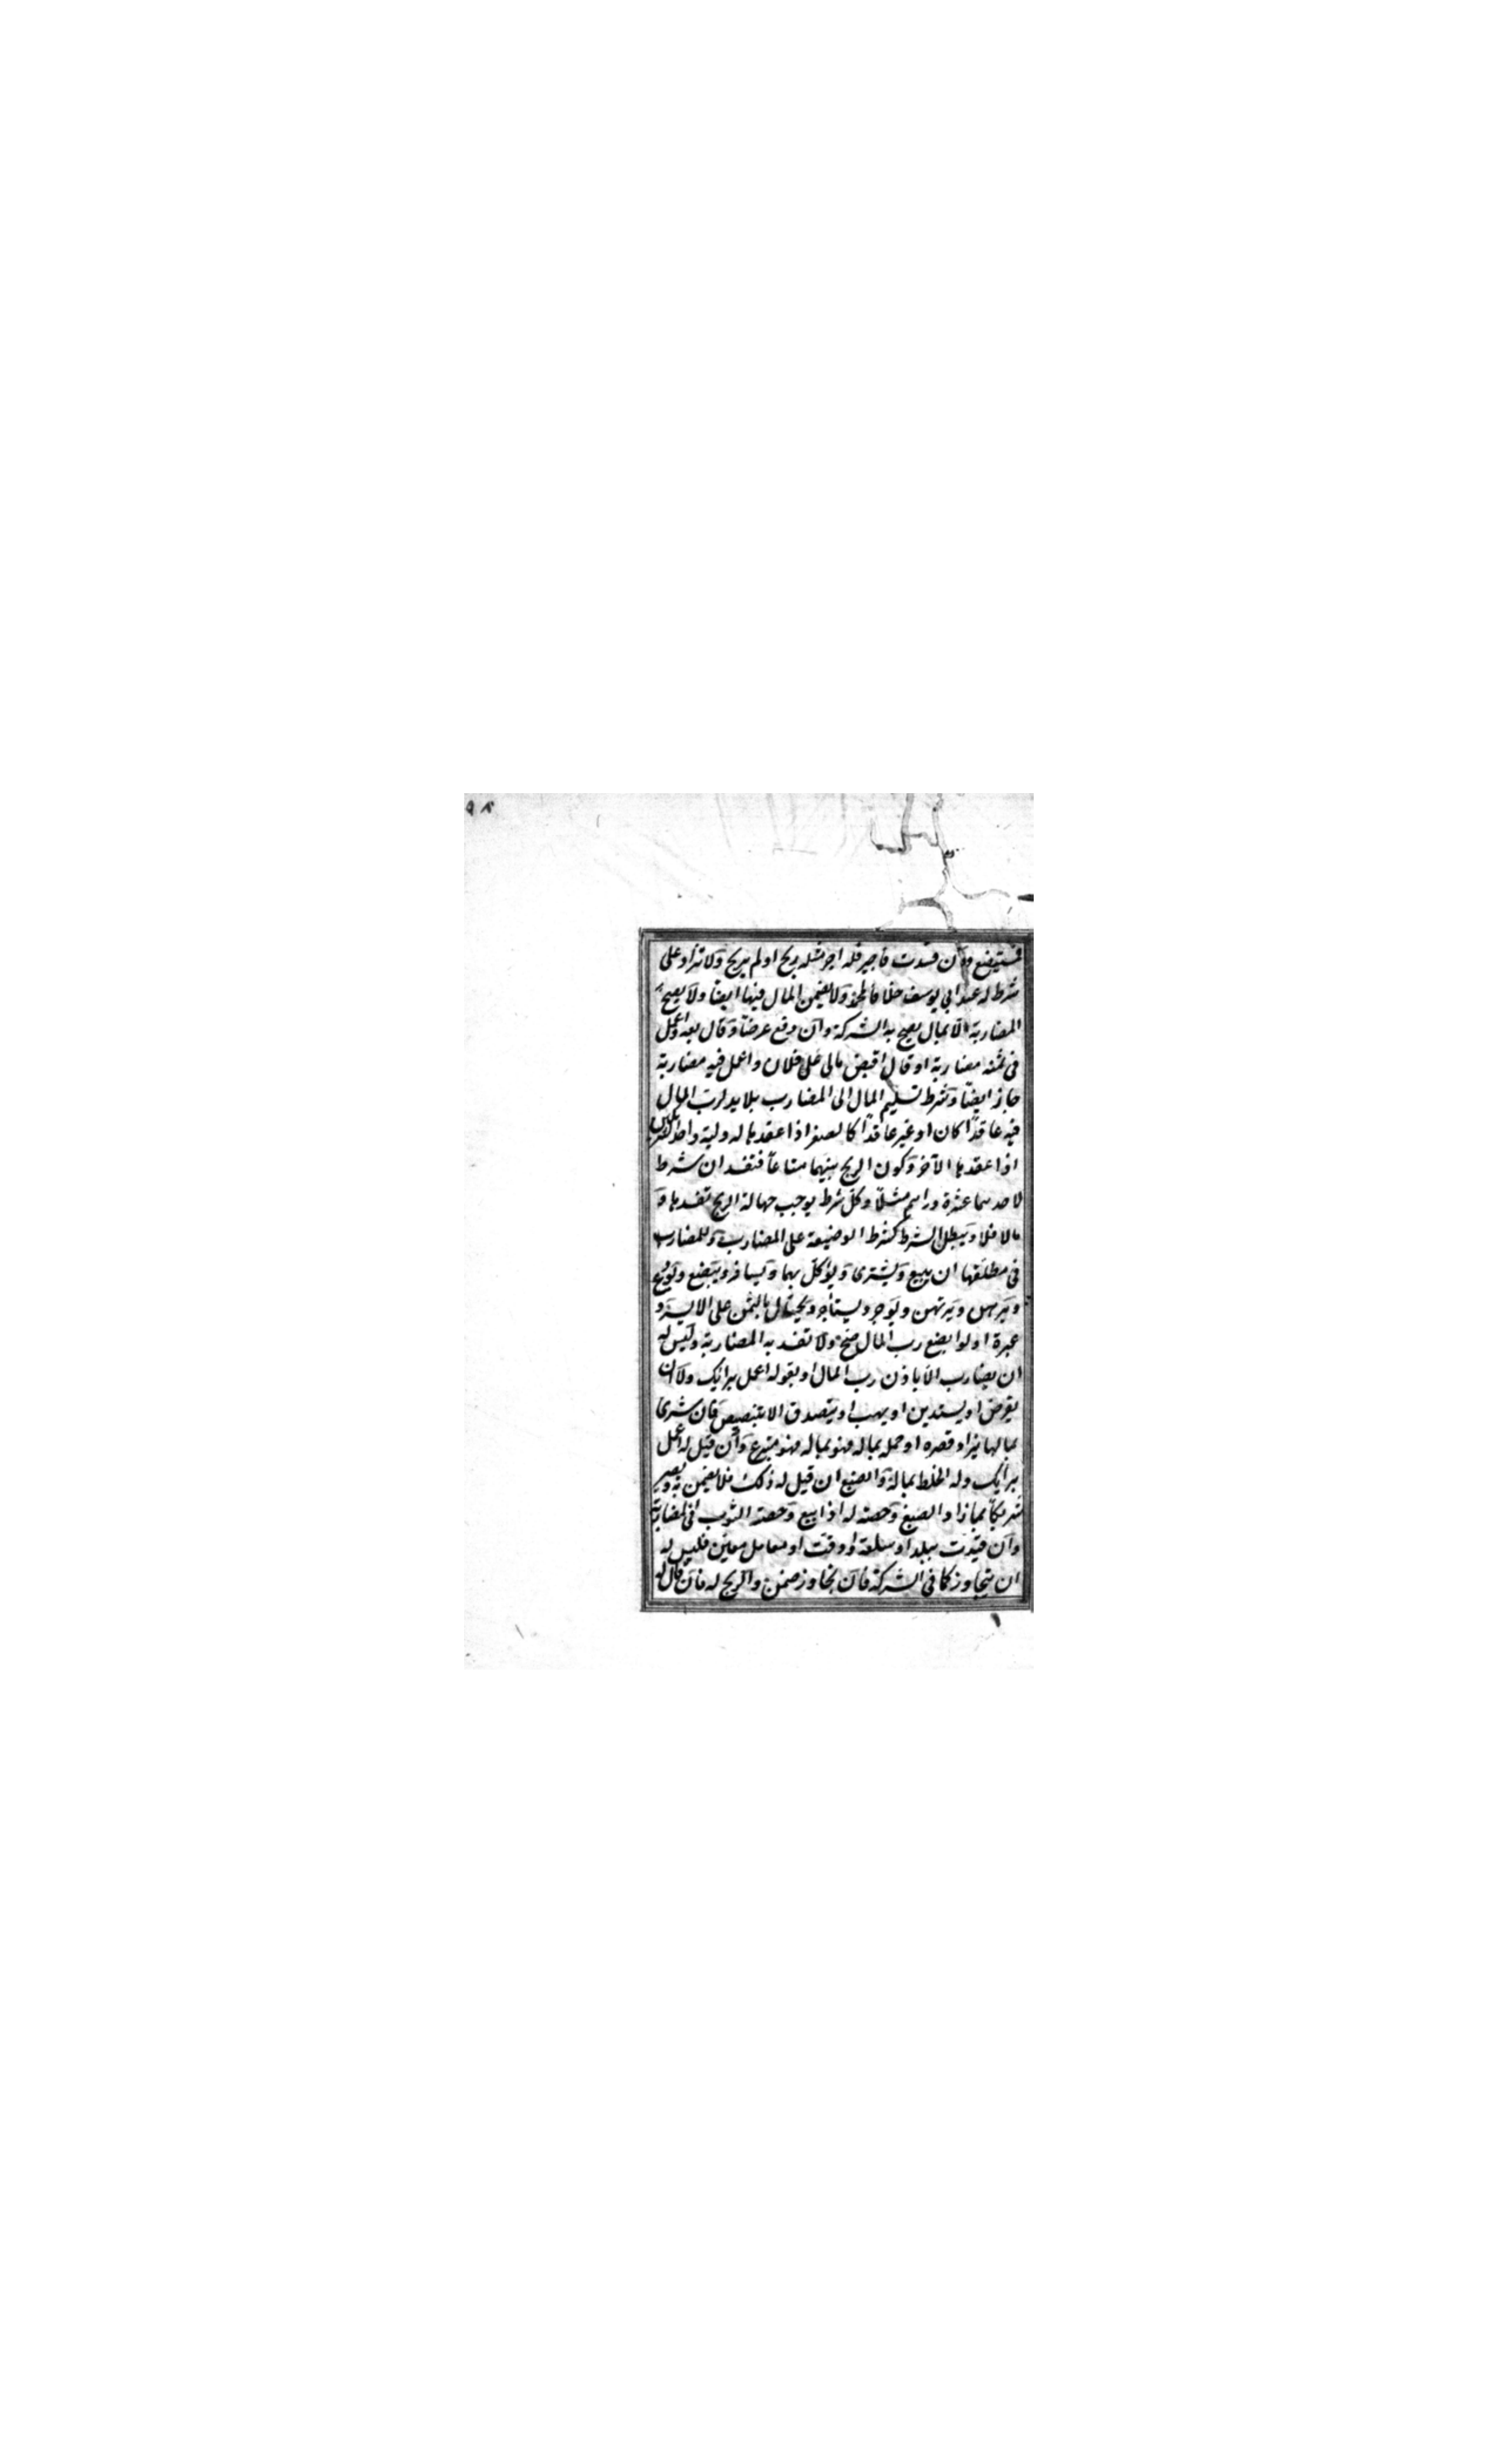 ٩٨
فمستبضع وان فسدت فاجير فله اجر مثله ربح او لم يربح ولا تزاد على
شرط له عند ابي يوسف خلافا لمحمد ولا يضمن المال فيها ايضا ولا يصح
المضاربة الا بمال يصح به الشركة وان دفع عرضا وقال بعه واعمل
في ثمنه مضاربة او قال اقبض مالى على فلان واعمل فيه مضاربة
جاز ايضا وشرط تسليم المال الى المضارب بلا يد لرب المال
فيه عاقدا كان او غير عاقد كالصغير اذا عقدها له وليه واحد الشريكين
اذا عقدها الآخر وكون الربح بينهما مشاعا فتفسد ان شرط
لاحدهما عشرة دراهم مثلا وكل شرط يوجب جهالة الربح تفسدها و
مالا فلا ويبطل الشرط كشرط الوضيعة على المضارب وللمضارب
في مطلقها ان يبيع ويشترى ويوكل بهما ويسافر ويبضع ويودع
ويرهن ويرتهن ويوجر ويستأجر ويحتال بالثمن على الايسر و
غيره او لو ابضع رب المال صح ولا تفسد به المضاربة وليس له
ان يضارب الا باذن رب المال او بقوله اعمل برائك ولا ان
يقرض او يستدين او يهب او يتصدق الا بتنصيص فان شرى
بمالها بزا وقصره او حمله بماله فهو متبرع وان قيل له اعمل
برائك وله الخلط بماله والصبغ ان قيل له ذلك فلا يضمن به ويصير
شريكا بما زاد الصبغ وحصته له اذا بيع وحصة الثوب في المضاربة
وان قيدت ببلد او سلعة او وقت او معامل معين فليس له
ان يتجاوز كما في الشركة فان تجاوز ضمن والربح له فان قال له